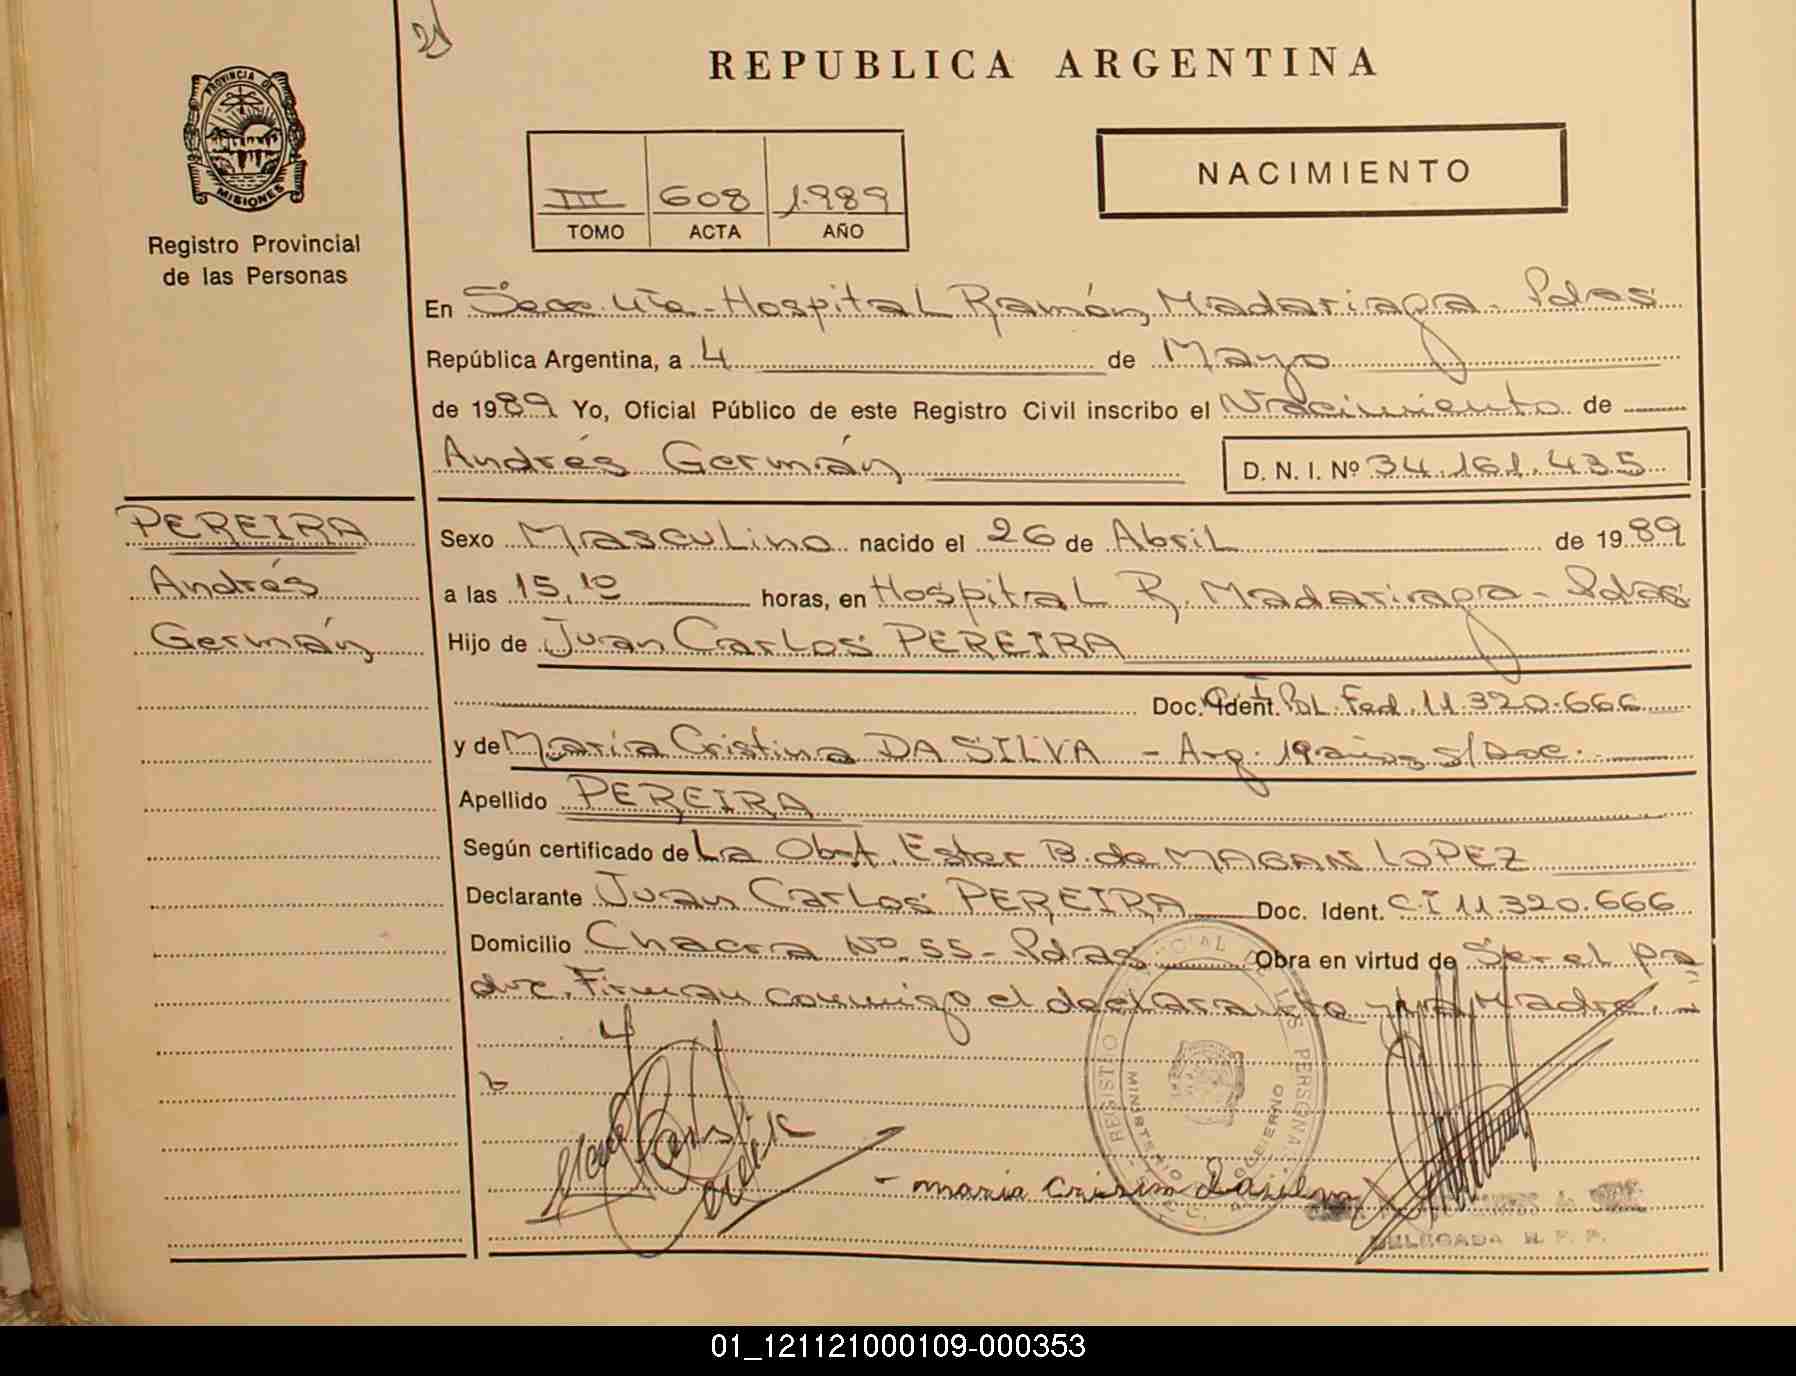 21
REPUBLICA ARGENTINA
PROVINCIA DE
MISIONES
Registro Provincial
de las Personas
III 608 1.989
TOMO ACTA AÑO
NACIMIENTO
En Secc. Hospital Ramón Madariaga - Pdas
República Argentina, a 4 de Mayo
de 1989 Yo, Oficial Público de este Registro Civil inscribo el Nacimiento de
Andrés Germán D. N. I. Nº 34.161.435
PEREIRA
Andrés
Germán
Sexo Masculino nacido el 26 de Abril de 1989
a las 15,10 horas, en Hospital R. Madariaga - Pdas
Hijo de Juan Carlos PEREIRA
Doc. Ident. Pol. Fed. 11.320.666
y de María Cristina DA SILVA - Arg. 19 años s/Doc.
Apellido PEREIRA
Según certificado de La Obst. Ester B. de MAGAN LOPEZ
Declarante Juan Carlos PEREIRA Doc. Ident. C I 11.320.666
Domicilio Chacra Nº 55 - Pdas Obra en virtud de Ser el pa
dre. Firman conmigo el declarante y la Madre. -
REGISTRO PERSONAS
MINISTERIO GOBIERNO
- maria Dasilva
DELEGADA R. P. P.
01_121121000109-000353